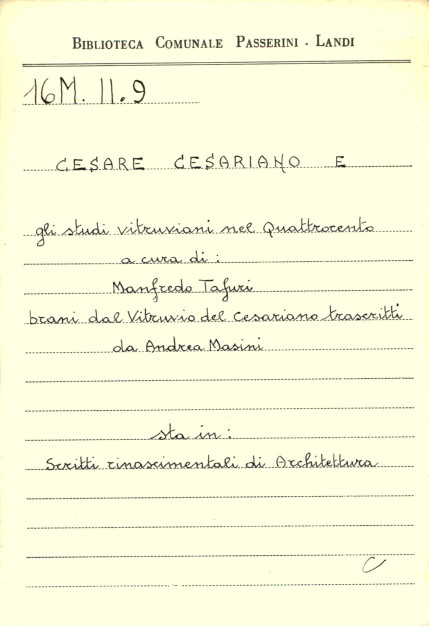 BIBLIOTECA COMUNALE PASSERINI - LANDI
16M. II.9
CESARE CESARIANO E
gli studi vitruviani nel Quattrocento
a cura di :
Manfredo Tafuri
brani dal Vitruvio del Cesariano trascritti
da Andrea Masini
sta in :
Scritti rinascimentali di Architettura
C